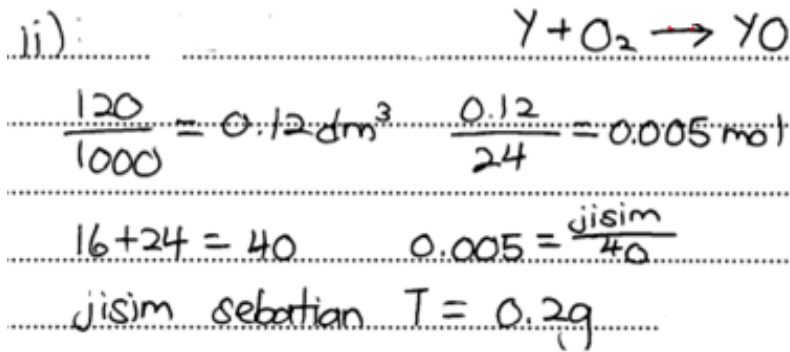 ii) Y + O₂ → YO
120/1000 = 0.12 dm³ 0.12/24 = 0.005 mol
16 + 24 = 40 0.005 = jisim/40
jisim sebatian T = 0.2g